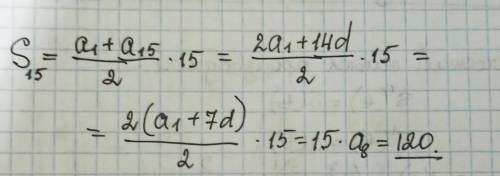 S₁₅ = (a₁ + a₁₅)/2 · 15 = (2a₁ + 14d)/2 · 15 =
= 2(a₁ + 7d)/2 · 15 = 15 · a₈ = 120.